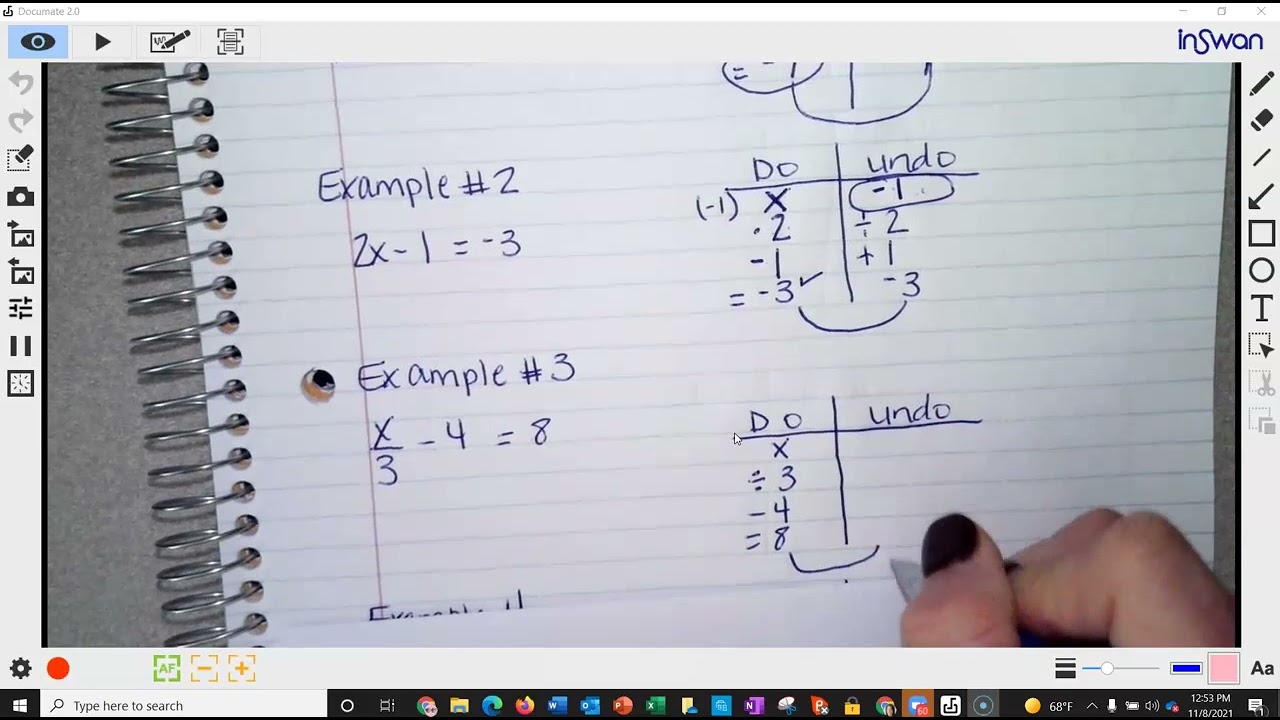 Documate 2.0
inSwan
Example #2
2x - 1 = -3
Do undo
(-1) x -1
· 2 ÷ 2
- 1 + 1
= -3 ✓ -3
Example #3
x/3 - 4 = 8
Do undo
x
÷ 3
- 4
= 8
T
AF
Aa
Type here to search
60
68°F
12:53 PM
11/8/2021